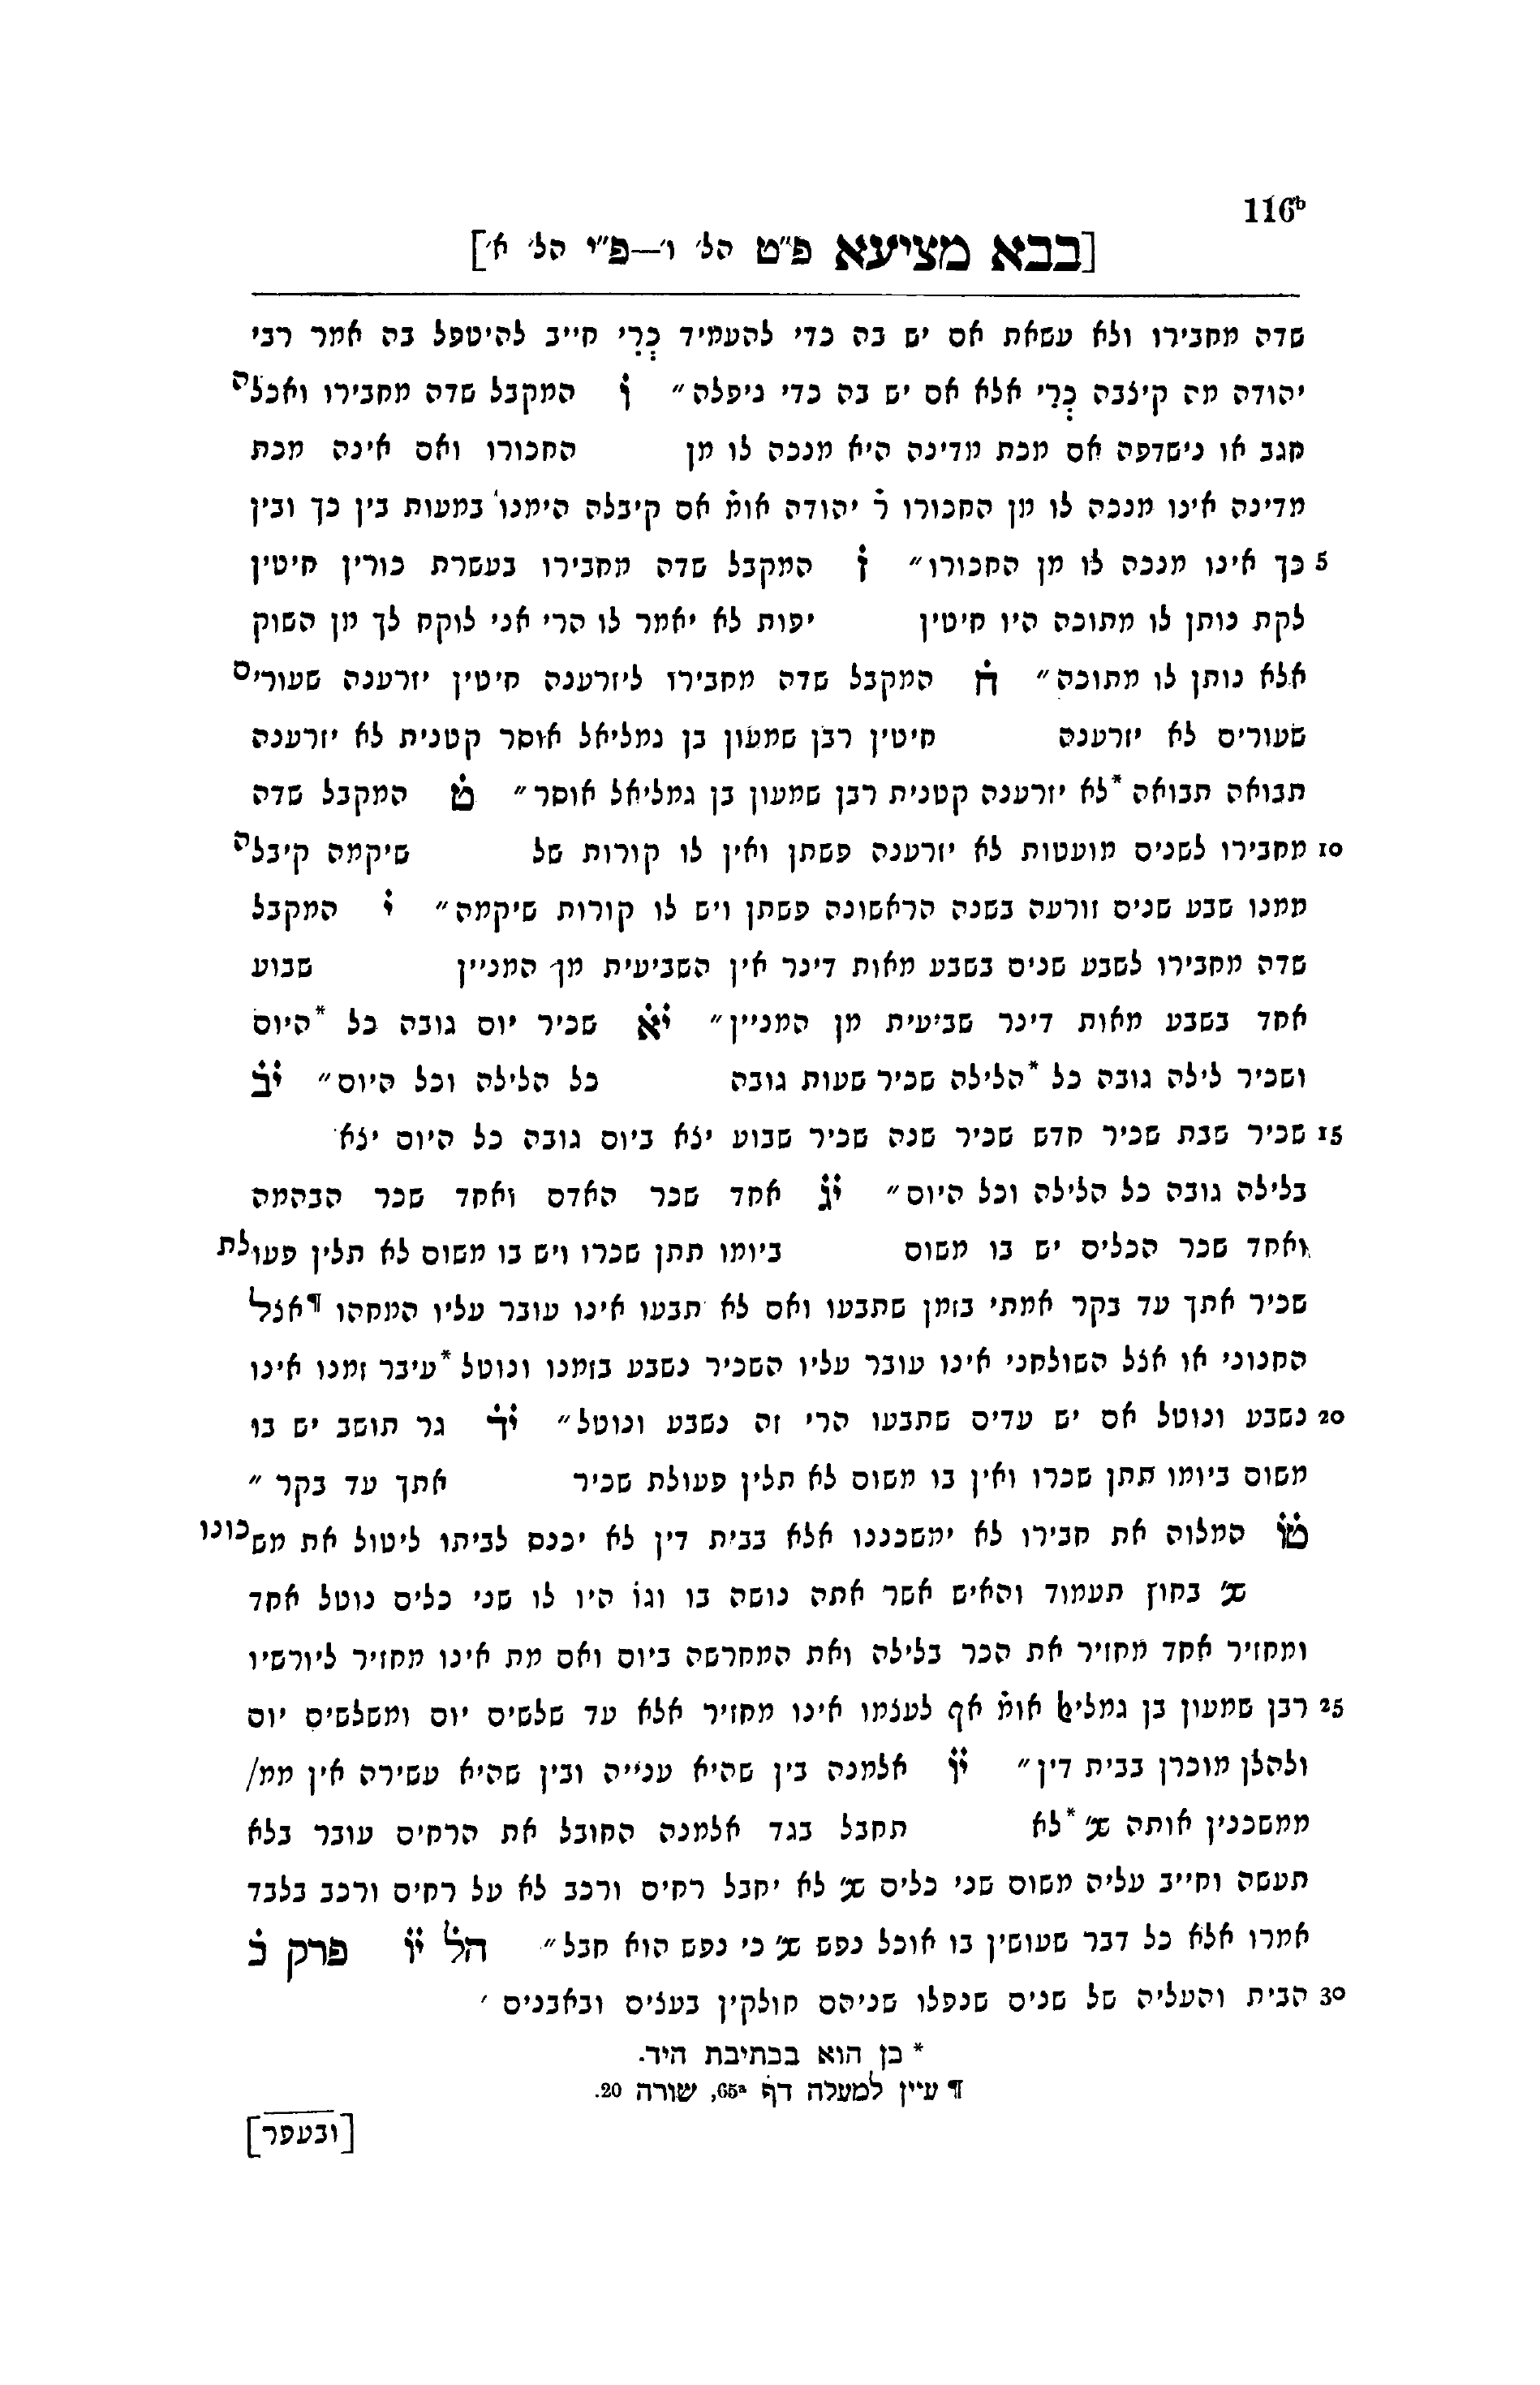 116ᵇ
[בבא מציעא פ״ט הל׳ ו׳—פ״י הל׳ א׳]
שדה מחבירו ולא עשאת אם יש בה כדי להעמיד כְרִי חייב להיטפל בה אמר רבי
יהודה מה קיצבה כְרִי אלא אם יש בה כדי ניפלה״ וֹ המקבל שדה מחבירו ואכלה
חגב או נישדפה אם מכת מדינה היא מנכה לו מן החכורו ואם אינה מכת
מדינה אינו מנכה לו מן החכורו רֹ יהודה אומֹ אם קיבלה הימנו במעות בין כך ובין
5 כך אינו מנכה לו מן החכורו״ זֹ המקבל שדה מחבירו בעשרת כורין חיטין
לקת נותן לו מתוכה היו חיטין יפות לא יאמר לו הרי אני לוקח לך מן השוק
אלא נותן לו מתוכה״ חֹ המקבל שדה מחבירו ליזרענה חיטין יזרענה שעורים
שעורים לא יזרענה חיטין רבן שמעון בן גמליאל אוסר קטנית לא יזרענה
תבואה תבואה *לא יזרענה קטנית רבן שמעון בן גמליאל אוסר״ טֹ המקבל שדה
10 מחבירו לשנים מועטות לא יזרענה פשתן ואין לו קורות של שיקמה קיבלה
ממנו שבע שנים זורעה בשנה הראשונה פשתן ויש לו קורות שיקמה״ יֹ המקבל
שדה מחבירו לשבע שנים בשבע מאות דינר אין השביעית מן המניין שבוע
אחד בשבע מאות דינר שביעית מן המניין״ יֹאֹ שכיר יום גובה כל *היום
ושכיר לילה גובה כל *הלילה שכיר שעות גובה כל הלילה וכל היום״ יֹבֹ
15 שכיר שבת שכיר חדש שכיר שנה שכיר שבוע יצא ביום גובה כל היום יצא
בלילה גובה כל הלילה וכל היום״ יֹגֹ אחד שכר האדם ואחד שכר הבהמה
ואחד שכר הכלים יש בו משום ביומו תתן שכרו ויש בו משום לא תלין פעולת
שכיר אתך עד בקר אמתי בזמן שתבעו ואם לא תבעו אינו עובר עליו המחהו ¶אצל
החנוני או אצל השולחני אינו עובר עליו השכיר נשבע בזמנו ונוטל *עיבר זמנו אינו
20 נשבע ונוטל אם יש עדים שתבעו הרי זה נשבע ונוטל״ יֹדֹ גר תושב יש בו
משום ביומו תתן שכרו ואין בו משום לא תלין פעולת שכיר אתך עד בקר ״
טֹוֹ המלוה את חבירו לא ימשכננו אלא בבית דין לא יכנס לביתו ליטול את משכונו
שנ׳ בחוץ תעמוד והאיש אשר אתה נושה בו וגוֹ היו לו שני כלים נוטל אחד
ומחזיר אחד מחזיר את הכר בלילה ואת המחרשה ביום ואם מת אינו מחזיר ליורשיו
25 רבן שמעון בן גמליﭏ אומֹ אף לעצמו אינו מחזיר אלא עד שלשים יום ומשלשים יום
ולהלן מוכרן בבית דין״ יֹוֹ אלמנה בין שהיא ענייה ובין שהיא עשירה אין ממ/
ממשכנין אותה שנ׳ *לא תחבל בגד אלמנה החובל את הרחים עובר בלא
תעשה וחייב עליה משום שני כלים שנ׳ לא יחבל רחים ורכב לא על רחים ורכב בלבד
אמרו אלא כל דבר שעושין בו אוכל נפש שנ׳ כי נפש הוא חבל״ הלֹ יֹוֹ פרק כֹ
30 הבית והעליה של שנים שנפלו שניהם חולקין בעצים ובאבנים ׳
* כן הוא בכתיבת היד.
¶ עיין למעלה דף 65ᵃ, שורה 20.
[ובעפר]